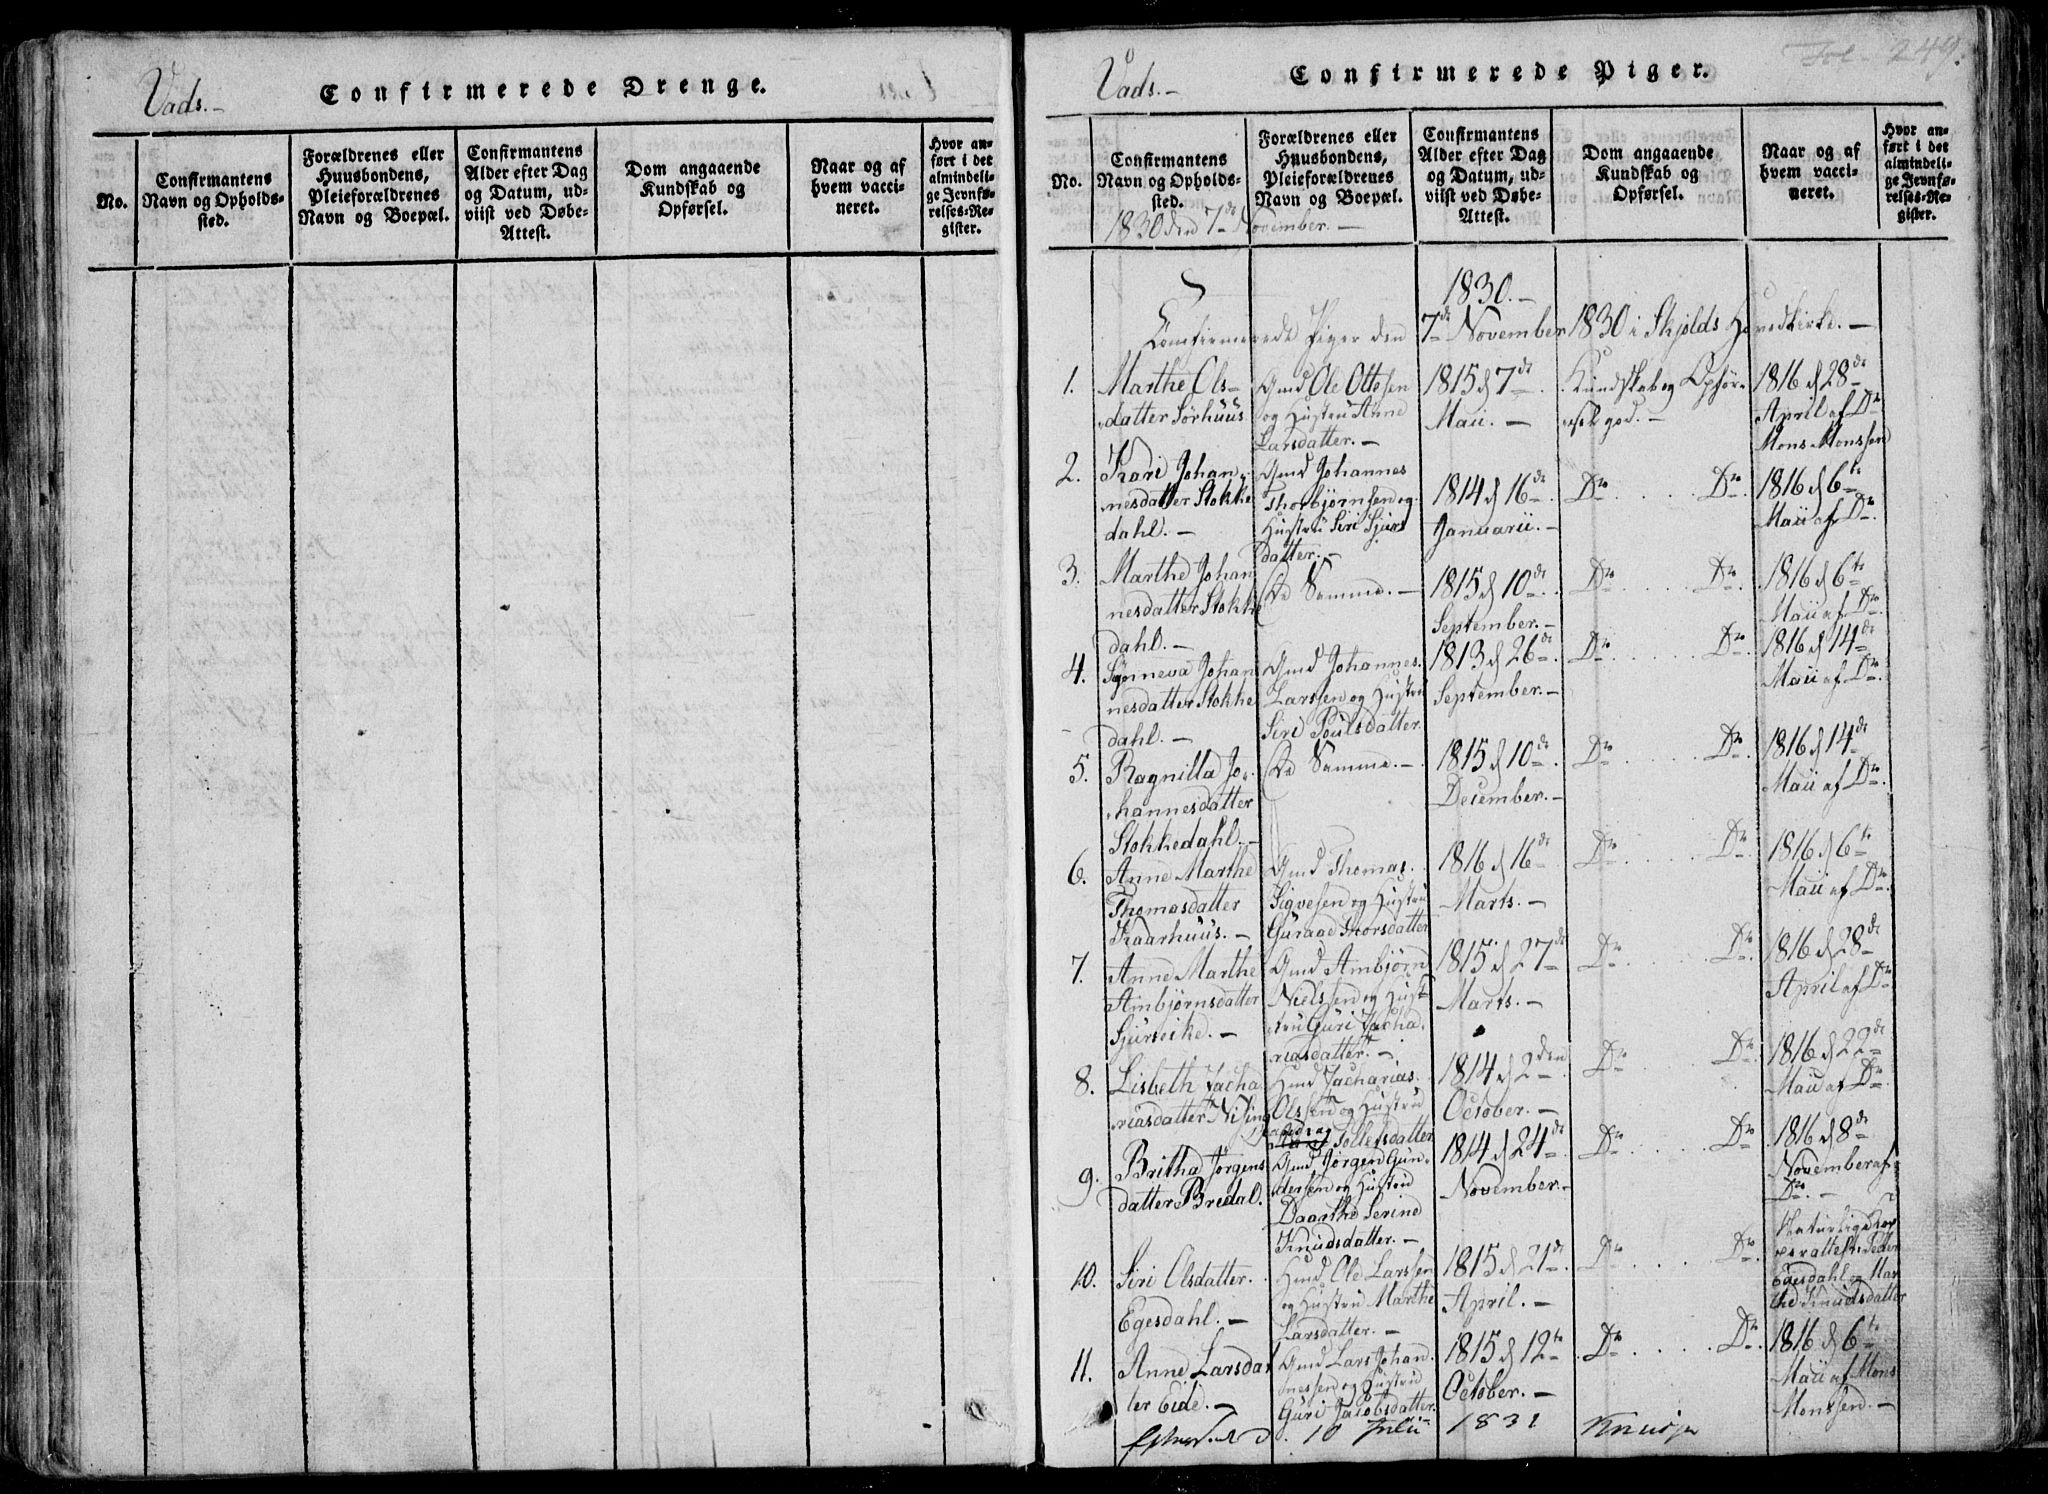 Vads.-
Confirmerede Drenge.
No.
Confirmantens
Navn og Opholds-
sted.
Forældrenes eller
Huusbondens,
Pleieforældrenes
Navn og Boepæl.
Confirmantens
Alder efter Dag
og Datum, ud-
viist ved Døbe-
Attest.
Dom angaaende
Kundskab og
Opførsel.
Naar og af
hvem vacci-
neret.
Hvor an-
ført i det
almindeli-
ge Jevnfø-
relses-Re-
gister.
Fol. 249.
Vads.-
Confirmerede Piger.
No.
Confirmantens
Navn og Opholds-
sted.
Forældrenes eller
Huusbondens,
Pleieforældrenes
Navn og Boepæl.
Confirmantens
Alder efter Dag
og Datum, ud-
viist ved Døbe-
Attest.
Dom angaaende
Kundskab og
Opførsel.
Naar og af
hvem vacci-
neret.
Hvor an-
ført i det
almindeli-
ge Jevnfø-
relses-Re-
gister.
1830 den 7de November.-
1830.-
Confirmerede Piger den 7de November 1830 i Skjolds Hovedkirke.-
1. Marthe Ols-
datter Sørhuus
Gmd Ole Ottesen
og Hustru Anne
Larsdatter.-
1815 d 7de
Maii.-
Kundskab og Opfør-
sel god.-
1816 d 28de
April af Dr
Mons Monssen
2. Kari Johan-
nesdatter Stokke
dahl.-
Gmd Johannes
Thorbjørnsen og
Hustru Siri Sjurs
datter.-
1814 d 16de
Januarii.-
Do Do
1816 d 6te
Maii af Do.
3. Marthe Johan
nesdatter Stokke
dahl.-
De Samme.-
1815 d 10de
September.-
Do Do
1816 d 6te
Maii af Do.
4. Synneva Johan
nesdatter Stokke
dahl.-
Gmd Johannes
Larssen og Hustru
Siri Poulsdatter
1813 d 26de
September.-
Do Do
1816 d 14de
Maii af Do.
5. Ragnilla Jo-
hannesdatter
Stokkedahl.-
De Samme.-
1815 d 10de
December.-
Do Do
1816 d 14de
Maii af Do.
6. Anne Marthe
Thomasdatter
Kaarhuus.-
Gmd Thomas
Sigvesen og Hustru
Guraae Thorsdatter
1816 d 16de
Marts.-
Do Do
1816 d 6te
Maii af Do.
7. Anne Marthe
Ambjørnsdatter
Sjurseike.-
Gmd Ambjørn
Nielssen og Hust
tru Guri Zacha
riasdatter.-
1815 d 27de
Marts.-
Do Do
1816 d 28de
April af Do
8. Lisbeth Zacha
riasdatter
Hmd Zacharias
Olssen og Hustru
Tollefsdatter
1814 d 2den
October.-
Do Do
1816 d 22de
Maii af Do
9. Britha Jørgens
datter Bredal.
Gmd Jørgen Gun-
dersen og Hustru
Daarthe Serine
Knudsdatter.-
1814 d 24de
November.-
Do Do
1816 d 8de
November af
Do.-
10. Siri Olsdatter
Egesdahl.-
Hmd Ole Larssen
og Hustru Marthe
Larsdatter.-
1815 d 21de
April.-
Do Do
Naturlige Kop
per attest: Peder
Egesdahl og Mar
the Knudsdatter
11. Anne Larsdat
ter Eide.-
Gmd Lars Johan
nessen og Hustru
Guri Jacobsdatter.
1815 d 12te
October.-
Do Do
1816 d 6te
Maii af Mons
Monssen.-
10 Julii 1831